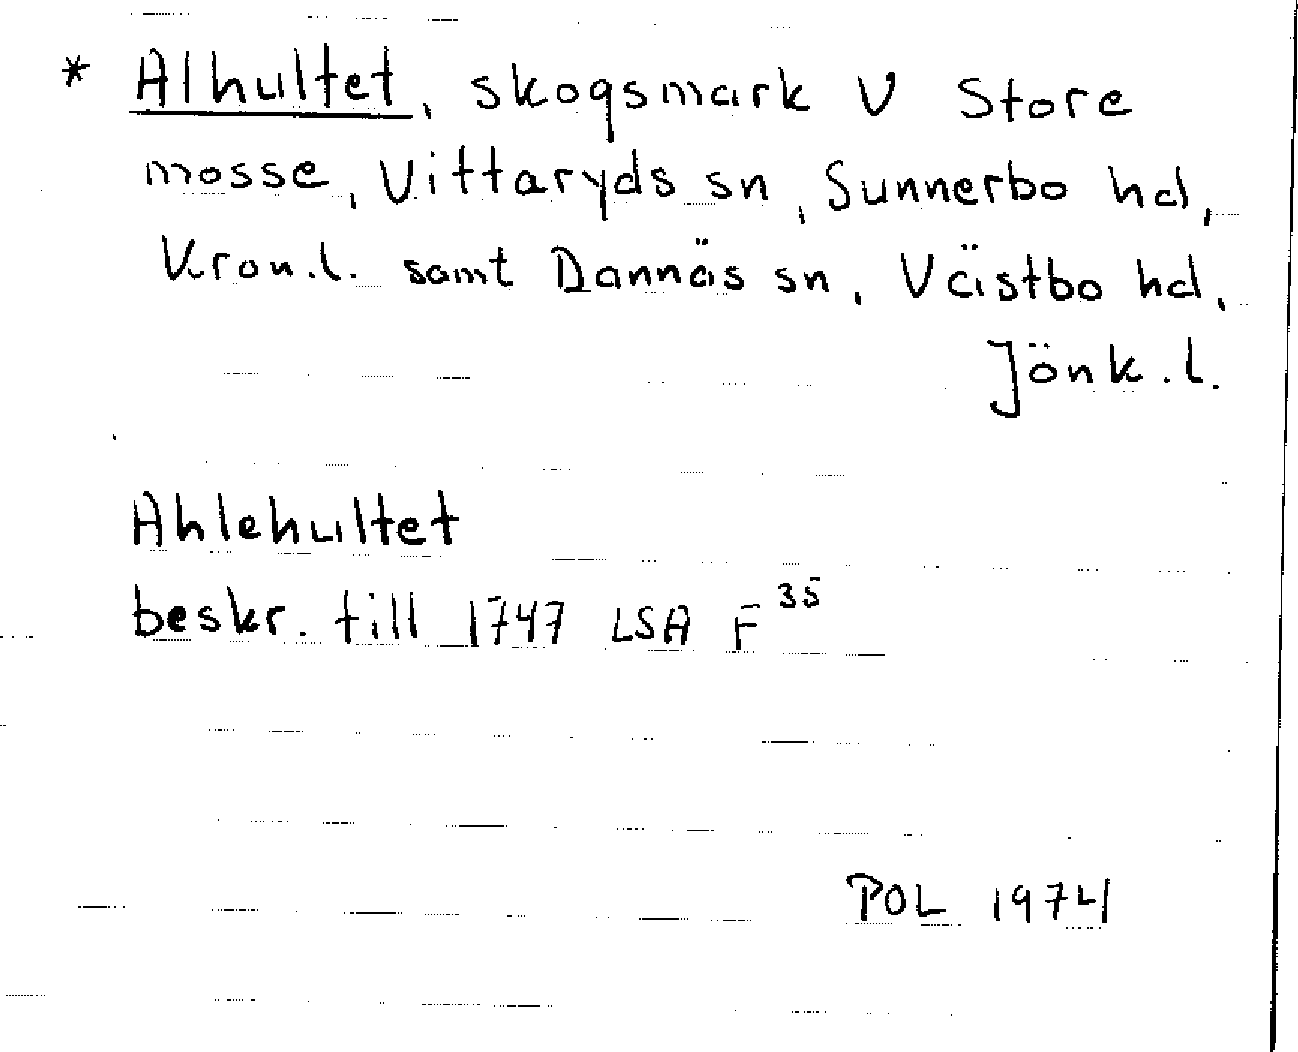 * Alhultet, skogsmark V Store
mosse, Vittaryds sn, Sunnerbo hd,
Kron.l. samt Dannäs sn, Västbo hd,
Jönk.l.
Ahlehultet
beskr. till 1747 LSA F 35
POL 1974